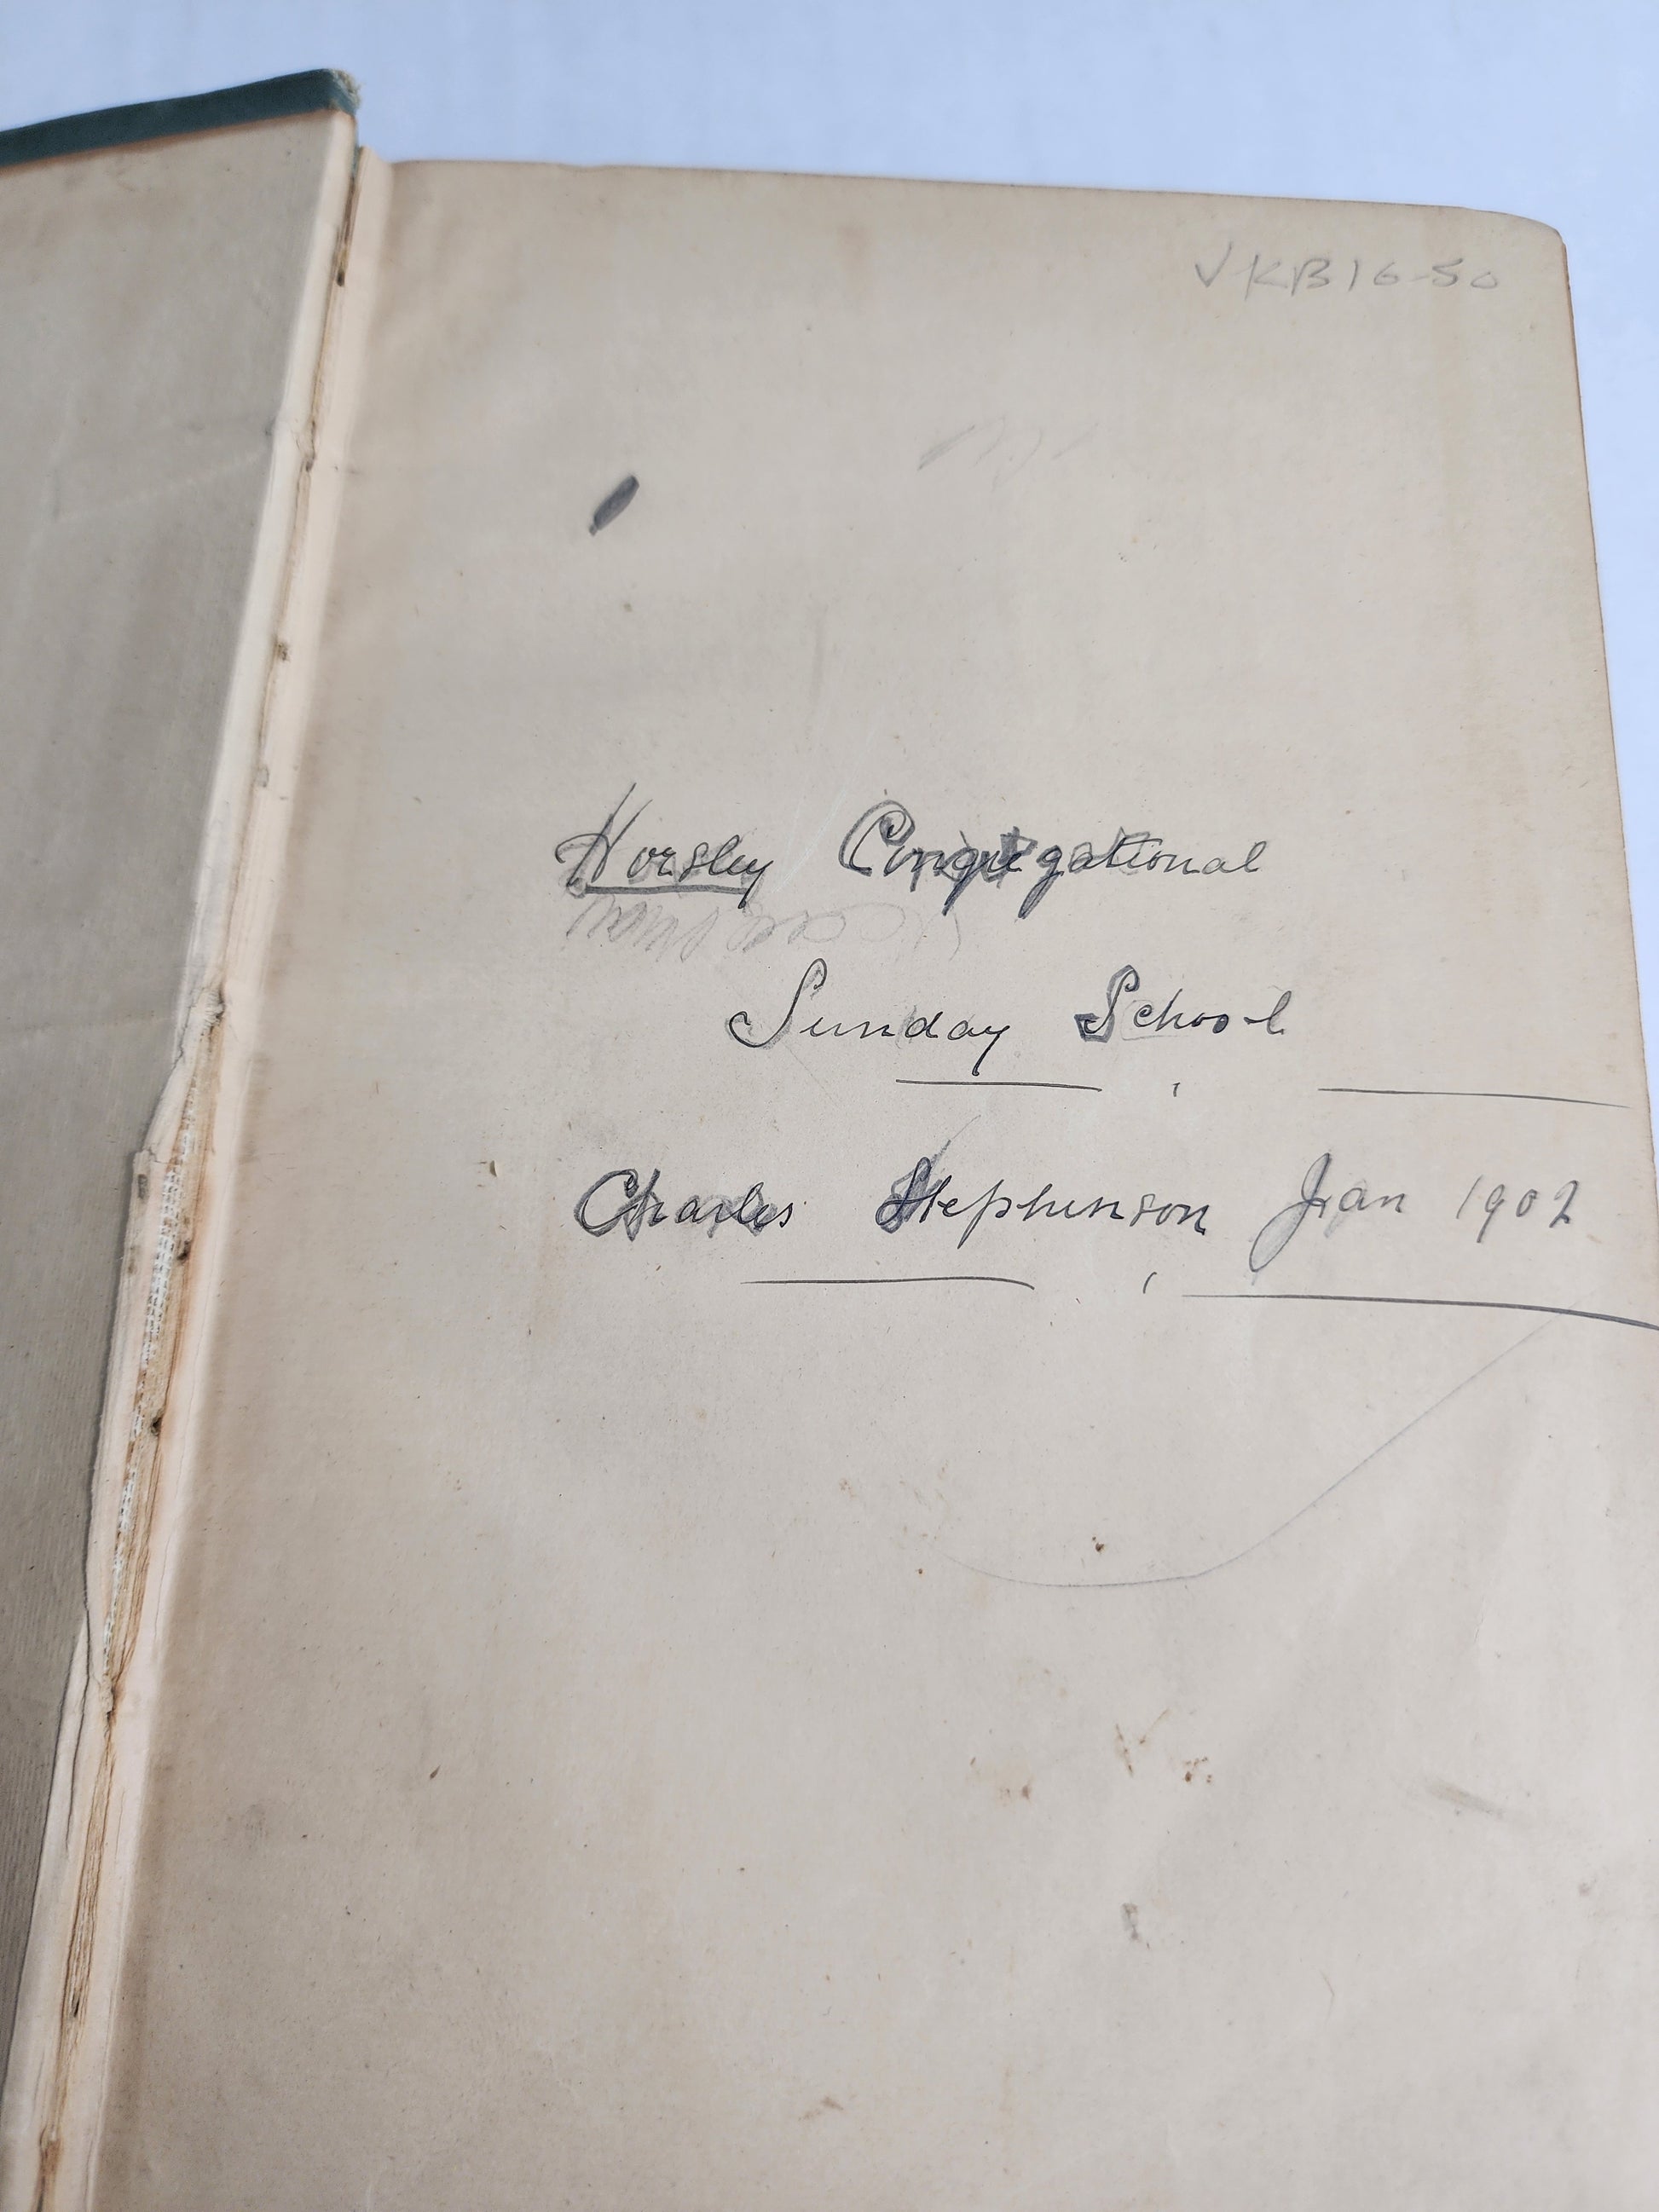 VKB16-50
Horsley Congregational
Sunday School
Charles Stephenson Jan 1902